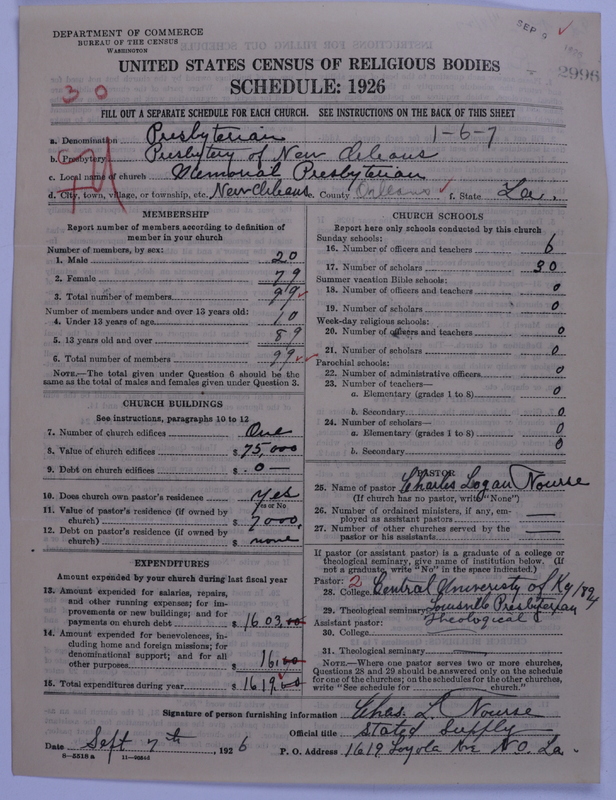 DEPARTMENT OF COMMERCE
BUREAU OF THE CENSUS
WASHINGTON
SEP 9
2996
UNITED STATES CENSUS OF RELIGIOUS BODIES
SCHEDULE: 1926
30
FILL OUT A SEPARATE SCHEDULE FOR EACH CHURCH. SEE INSTRUCTIONS ON THE BACK OF THIS SHEET
1-6-7
a. Denomination Presbyterian
b. Presbytery Presbytery of New Orleans
c. Local name of church Memorial Presbyterian
d. City, town, village, or township, etc. New Orleans e. County Orleans f. State La.
MEMBERSHIP
Report number of members according to definition of
member in your church
Number of members, by sex:
1. Male 20
2. Female 79
3. Total number of members 99
Number of members under and over 13 years old:
4. Under 13 years of age 10
5. 13 years old and over 89
6. Total number of members 99
NOTE.—The total given under Question 6 should be
same as the total of males and females given under Question 3.
CHURCH BUILDINGS
See instructions, paragraphs 10 to 12
7. Number of church edifices One
8. Value of church edifices $ 75,000
9. Debt on church edifices $ -0-
10. Does church own pastor's residence Yes
Yes or No
11. Value of pastor's residence (if owned by
church) $ 7000.
12. Debt on pastor's residence (if owned by
church) $ none
EXPENDITURES
Amount expended by your church during last fiscal year
13. Amount expended for salaries, repairs,
and other running expenses; for im-
provements or new buildings; and for
payments on church debt $ 1603.00
14. Amount expended for benevolences, in-
cluding home and foreign missions; for
denominational support; and for all
other purposes $ 16.00
15. Total expenditures during year $ 1619.00
CHURCH SCHOOLS
Report here only schools conducted by this church
Sunday schools:
16. Number of officers and teachers 6
17. Number of scholars 30
Summer vacation Bible schools:
18. Number of officers and teachers 0
19. Number of scholars 0
Week-day religious schools:
20. Number of officers and teachers 0
21. Number of scholars 0
Parochial schools:
22. Number of administrative officers 0
23. Number of teachers—
a. Elementary (grades 1 to 8) 0
b. Secondary 0
24. Number of scholars—
a. Elementary (grades 1 to 8) 0
b. Secondary 0
PASTOR
25. Name of pastor Charles Logan Nourse
(If church has no pastor, write "None")
26. Number of ordained ministers, if any, em-
ployed as assistant pastors —
27. Number of other churches served by the
pastor or his assistants —
If pastor (or assistant pastor) is a graduate of a college or
theological seminary, give name of institution below. (If
not a graduate, write "No" in the space indicated.)
Pastor: 2
28. College Central University of Ky 1894
29. Theological seminary Louisville Presbyterian
Theological
Assistant pastor:
30. College
31. Theological seminary
NOTE.—Where one pastor serves two or more churches,
Questions 28 and 29 should be answered only on the schedule
for one of the churches; on the schedules for the other churches,
write "See schedule for church."
Signature of person furnishing information Chas. L. Nourse
Official title Stated Supply
Date Sept 7th, 1926 P. O. Address 1619 Loyola Ave N.O. La.
8-5518 a